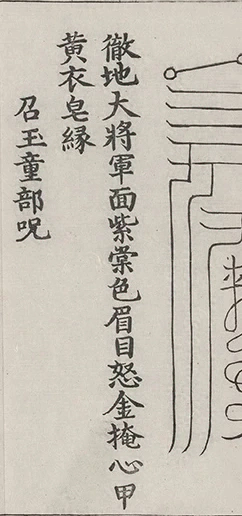 徹地大將軍面紫棠色眉目怒金掩心甲
黃衣皂緣
召玉童部呪